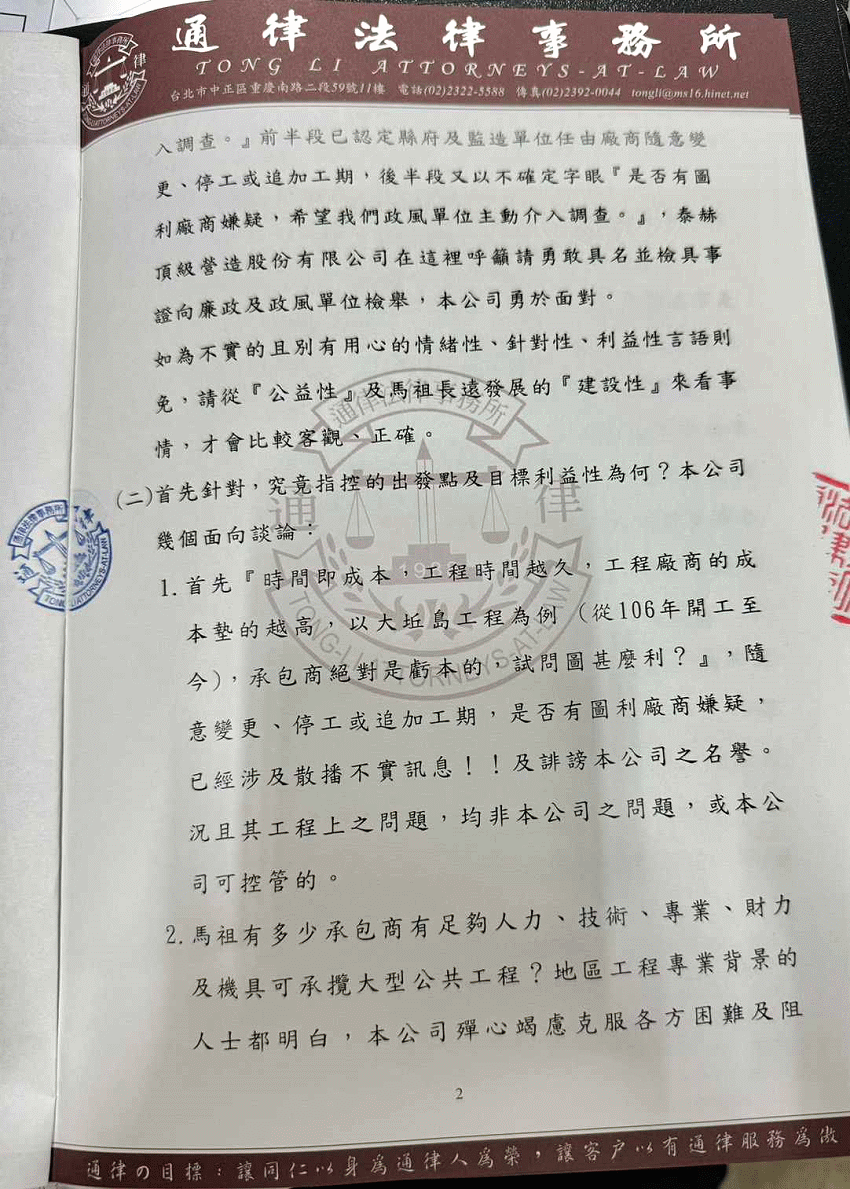 通律法律事務所
TONG LI ATTORNEYS-AT-LAW
台北市中正區重慶南路二段59號11樓 電話(02)2322-5588 傳真(02)2392-0044 tongli@ms16.hinet.net
入調查。』前半段已認定縣府及監造單位任由廠商隨意變
更、停工或追加工期，後半段又以不確定字眼『是否有圖
利廠商嫌疑，希望我們政風單位主動介入調查。』，泰赫
頂級營造股份有限公司在這裡呼籲請勇敢具名並檢具事
證向廉政及政風單位檢舉，本公司勇於面對。
如為不實的且別有用心的情緒性、針對性、利益性言語則
免，請從『公益性』及馬祖長遠發展的『建設性』來看事
情，才會比較客觀、正確。
(二)首先針對，究竟指控的出發點及目標利益性為何？本公司
幾個面向談論：
1. 首先『時間即成本，工程時間越久，工程廠商的成
本墊的越高，以大坵島工程為例（從106年開工至
今），承包商絕對是虧本的，試問圖甚麼利？』，隨
意變更、停工或追加工期，是否有圖利廠商嫌疑，
已經涉及散播不實訊息！！及誹謗本公司之名譽。
況且其工程上之問題，均非本公司之問題，或本公
司可控管的。
2. 馬祖有多少承包商有足夠人力、技術、專業、財力
及機具可承攬大型公共工程？地區工程專業背景的
人士都明白，本公司殫心竭慮克服各方困難及阻
2
通律の目標：讓同仁以身為通律人為榮，讓客戶以有通律服務為傲
通律法律事務所
通 律
TONG-LI ATTORNEYS-AT-LAW